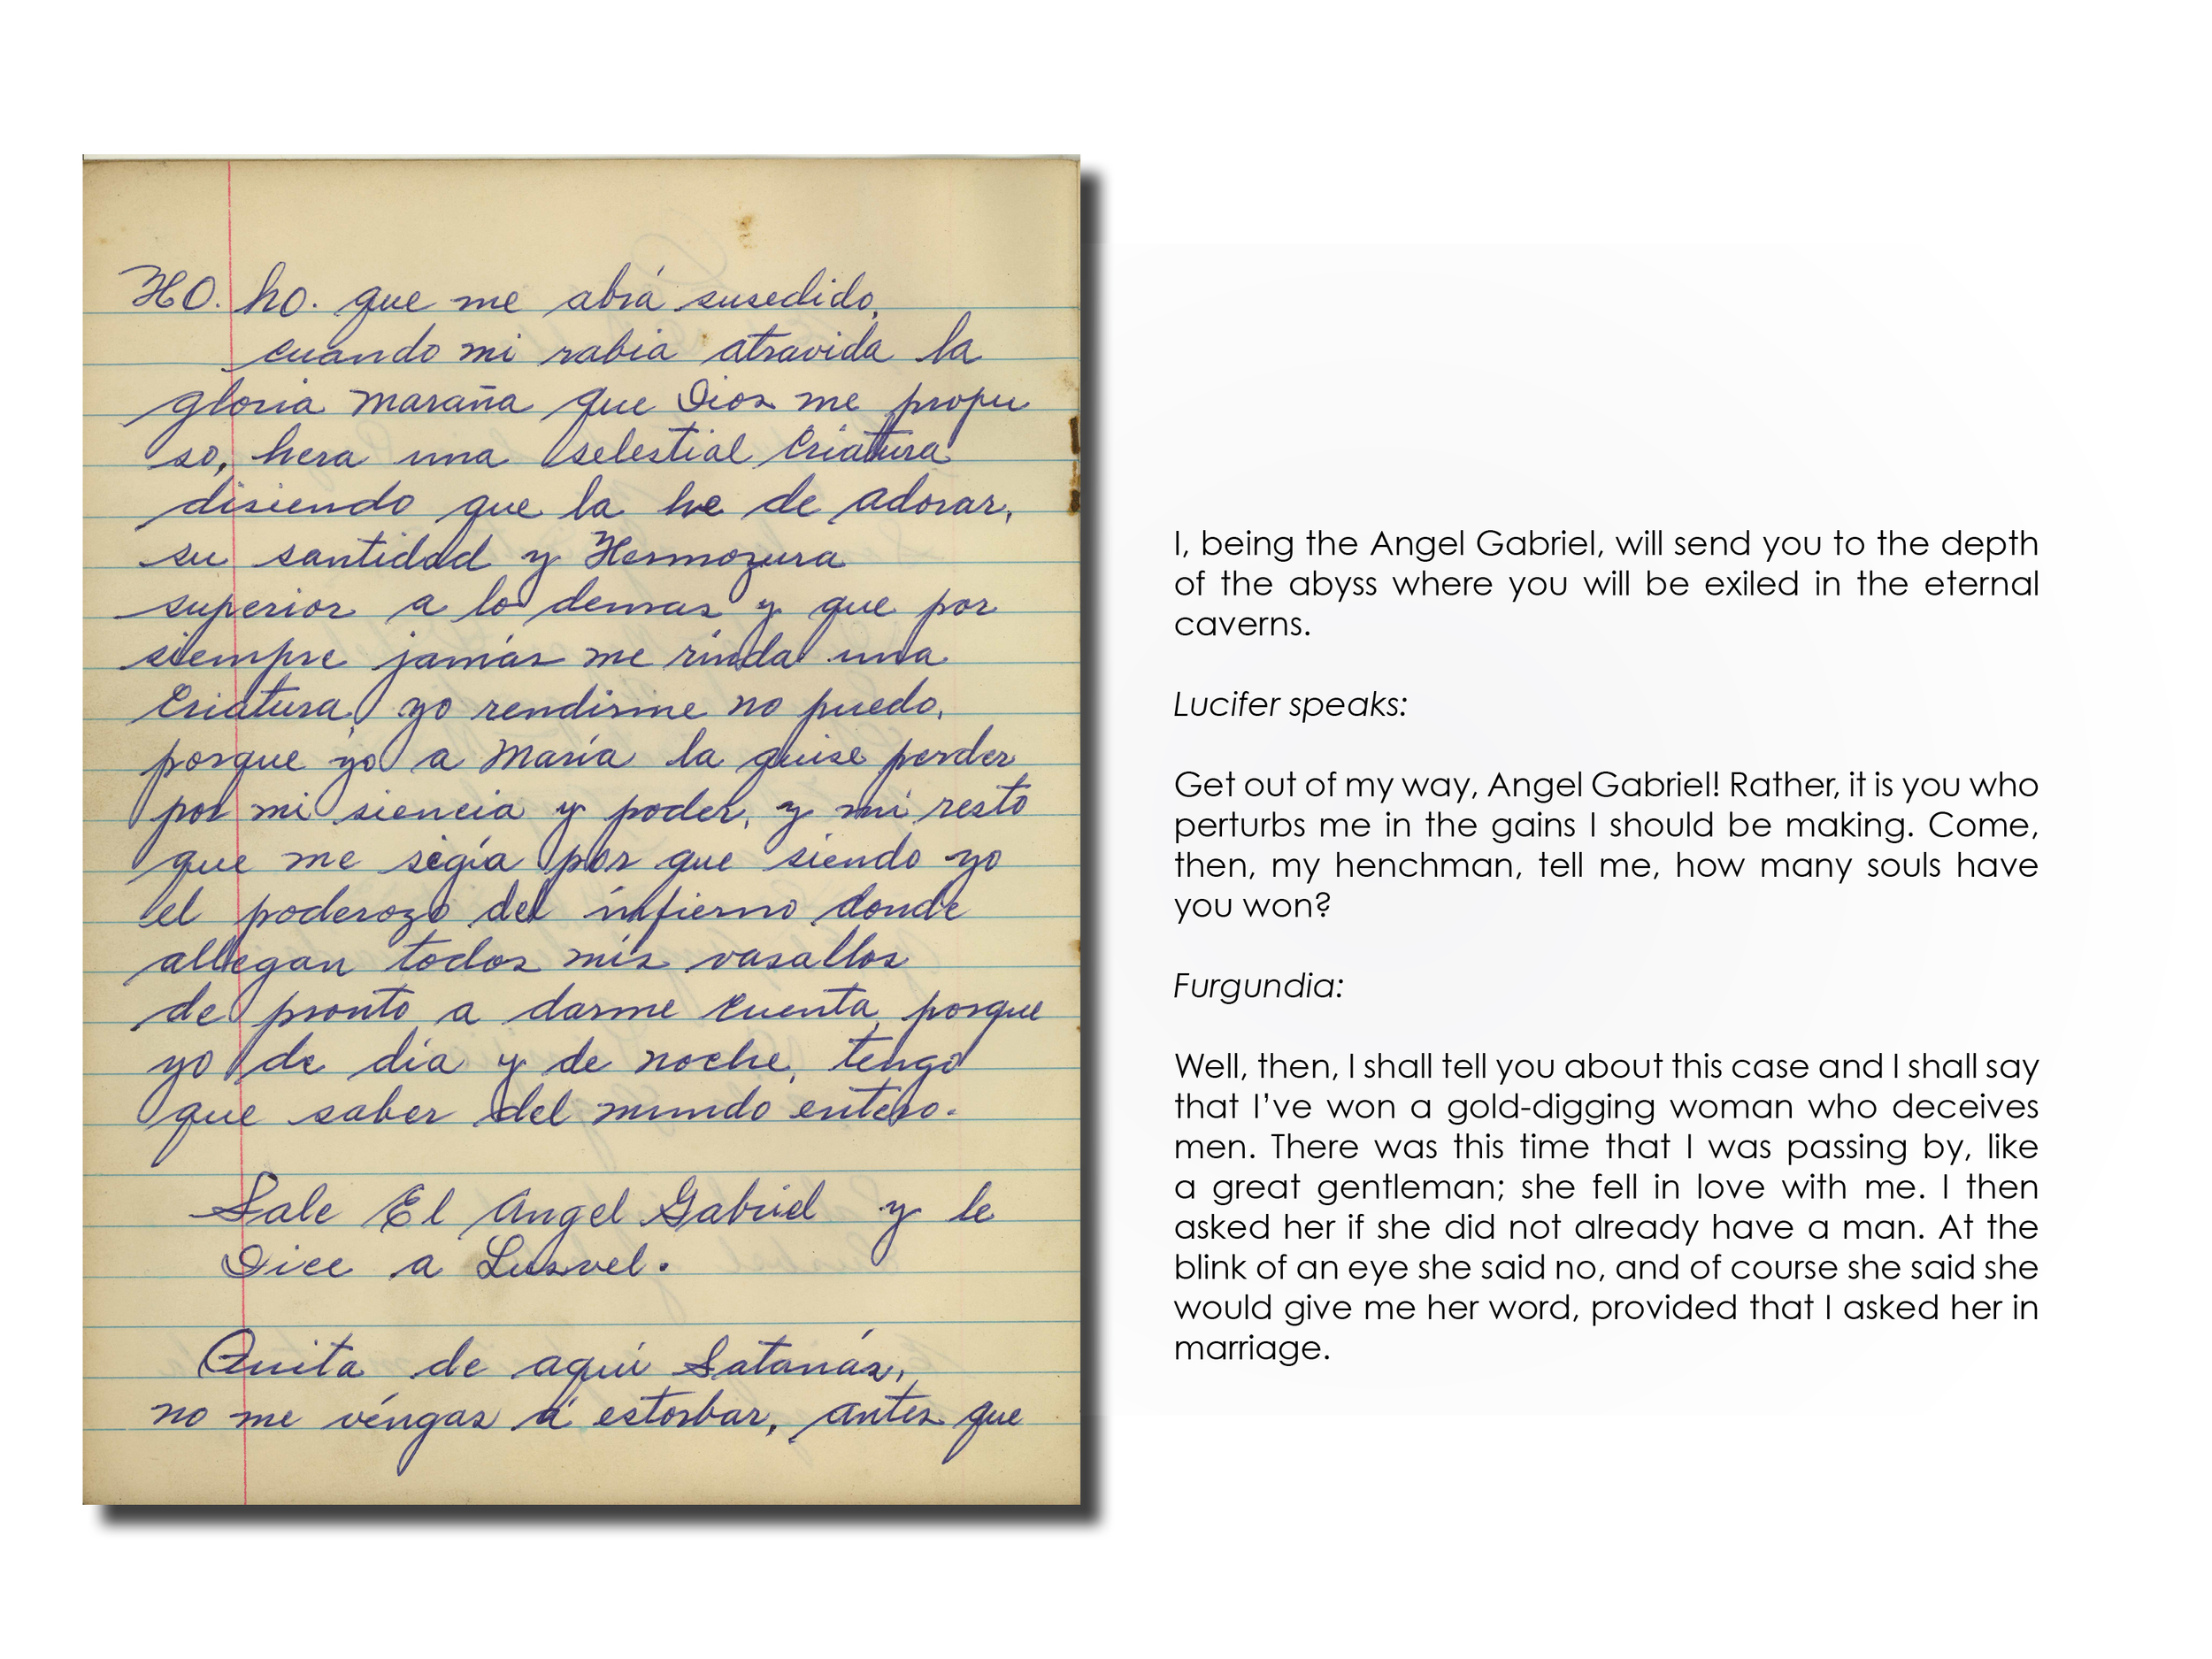 HO. ho. que me abrá susedido,
cuando mi rabia atravida la
gloria maraña que Dios me propu
so, hera una selestial Criatura
disiendo que la he de adorar,
su santidad y Hermozura
superior a lo demas y que por
siempre jamás me rinda una
Criatura, yo rendirme no puedo,
porque yo a María la quise perder
por mi siencia y poder, y mi resto
que me segía por que siendo yo
el poderozo del infierno donde
allegan todos mis vasallos
de pronto a darme cuenta, porque
yo de día y de noche, tengo
que saber del mundo entero.
Sale El Angel Gabriel y le
Dice a Lusvel.
Quita de aquí Satanás,
no me véngas á estorbar, antes que
I, being the Angel Gabriel, will send you to the depth
of the abyss where you will be exiled in the eternal
caverns.
Lucifer speaks:
Get out of my way, Angel Gabriel! Rather, it is you who
perturbs me in the gains I should be making. Come,
then, my henchman, tell me, how many souls have
you won?
Furgundia:
Well, then, I shall tell you about this case and I shall say
that I've won a gold-digging woman who deceives
men. There was this time that I was passing by, like
a great gentleman; she fell in love with me. I then
asked her if she did not already have a man. At the
blink of an eye she said no, and of course she said she
would give me her word, provided that I asked her in
marriage.